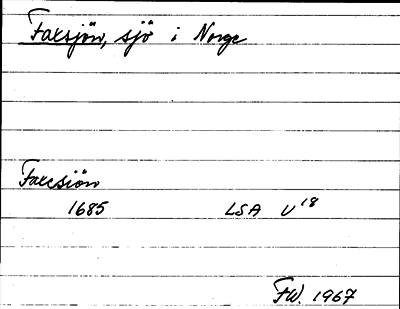 Faxsjön, sjö i Norge
Faxesiön
1685 LSA U18
FW. 1967